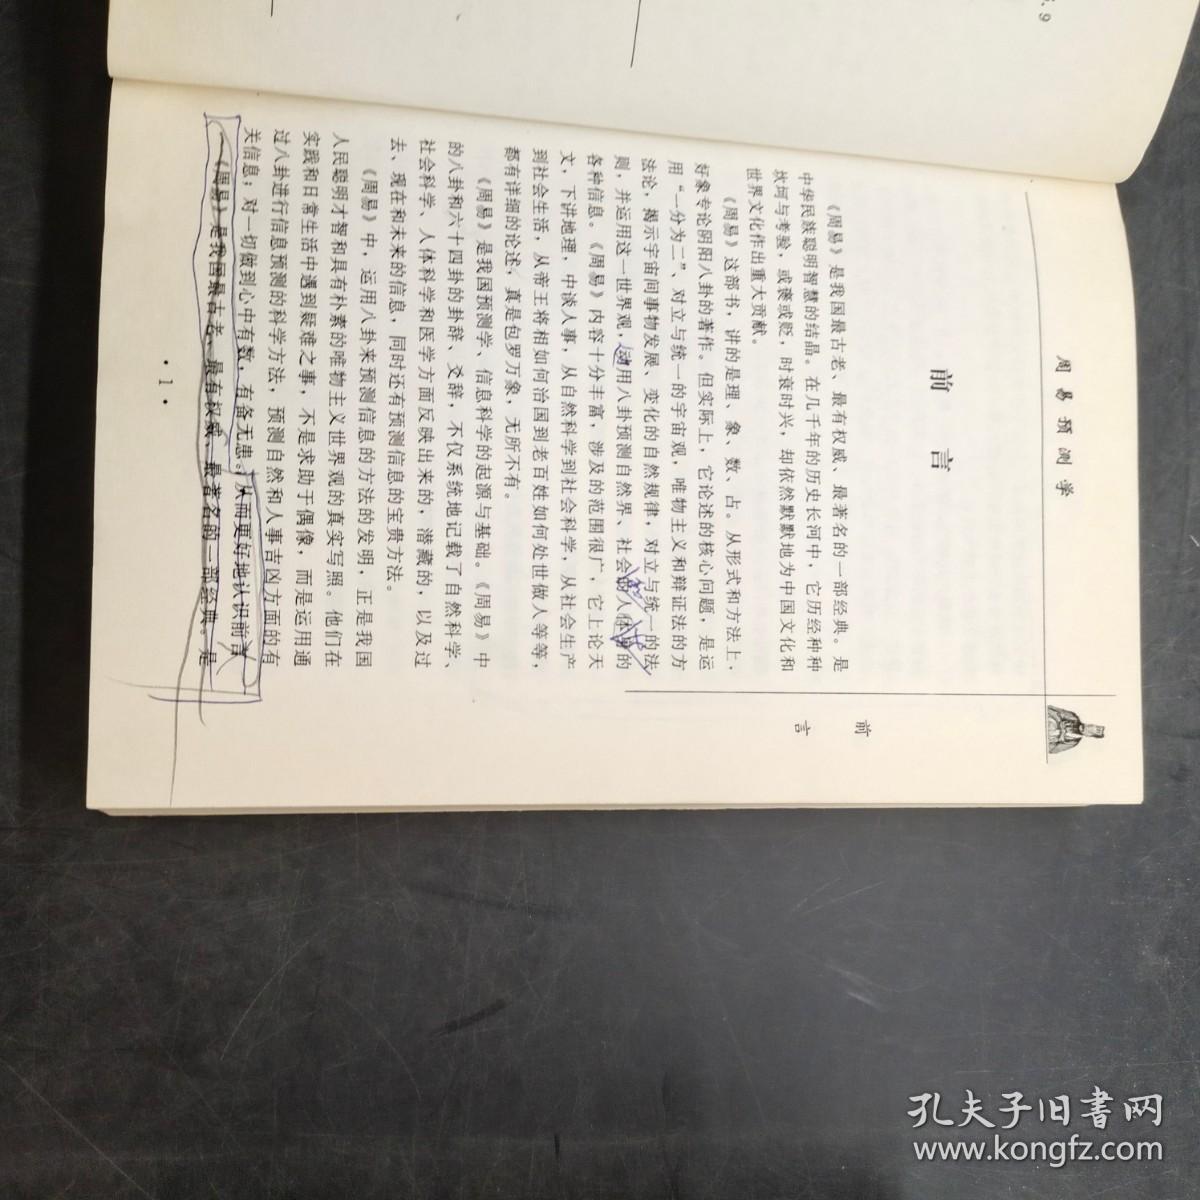 . 9
周易预测学
前言
前言
《周易》是我国最古老、最有权威、最著名的一部经典。是
中华民族聪明智慧的结晶。在几千年的历史长河中，它历经种种
坎坷与考验，或褒或贬，时衰时兴，却依然默默地为中国文化和
世界文化作出重大贡献。
《周易》这部书，讲的是理、象、数、占。从形式和方法上，
好象专论阴阳八卦的著作。但实际上，它论述的核心问题，是运
用“一分为二”、对立与统一的宇宙观，唯物主义和辩证法的方
法论，揭示宇宙间事物发展、变化的自然规律，对立与统一的法
则，并运用这一世界观，运用八卦预测自然界、社会的人体的
各种信息。《周易》内容十分丰富，涉及的范围很广，它上论天
文，下讲地理，中谈人事，从自然科学到社会科学，从社会生产
到社会生活，从帝王将相如何治国到老百姓如何处世做人等等，
都有详细的论述，真是包罗万象，无所不有。
《周易》是我国预测学、信息科学的起源与基础。《周易》中
的八卦和六十四卦的卦辞、爻辞，不仅系统地记载了自然科学、
社会科学、人体科学和医学方面反映出来的，潜藏的，以及过
去、现在和未来的信息，同时还有预测信息的宝贵方法。
《周易》中，运用八卦来预测信息的方法的发明，正是我国
人民聪明才智和具有朴素的唯物主义世界观的真实写照。他们在
实践和日常生活中遇到疑难之事，不是求助于偶像，而是运用通
过八卦进行信息预测的科学方法，预测自然和人事吉凶方面的有
关信息；对一切做到心中有数，有备无患。从而更好地认识前言
《周易》是我国最古老、最有权威、最著名的一部经典。是
·1·
孔夫子旧书网
www.kongfz.com